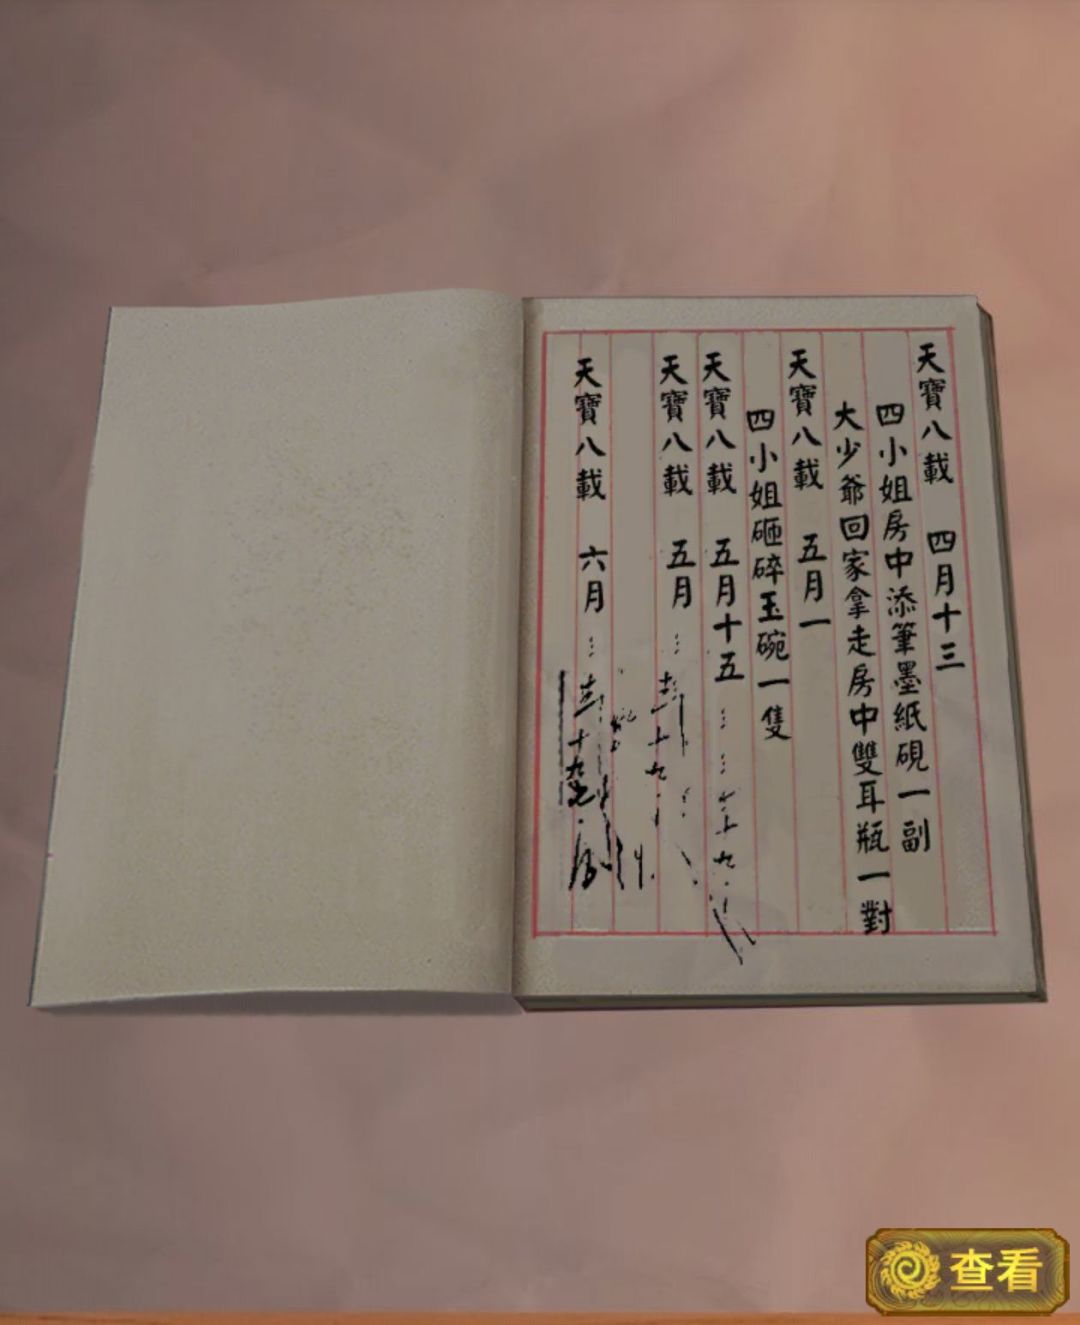 天寶八載 四月十三
四小姐房中添筆墨紙硯一副
大少爺回家拿走房中雙耳瓶一對
天寶八載 五月一
四小姐砸碎玉碗一隻
天寶八載 五月十五
天寶八載 五月
天寶八載 六月
查看